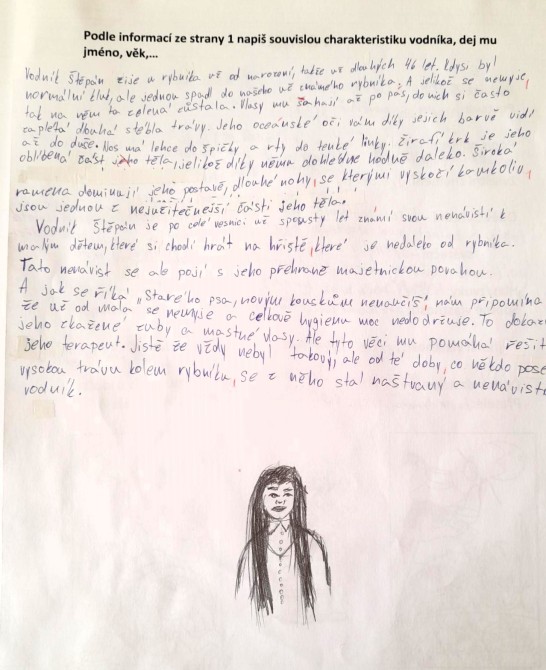 Podle informací ze strany 1 napiš souvislou charakteristiku vodníka, dej mu
jméno, věk,...
Vodník Štěpán žije u rybníka už od narození, takže už dlouhých 46 let. Kdysi byl
normální kluk, ale jednou spadl do našeho už známého rybníka. A jelikož se nemyje,
tak na něm ta zelená zůstala. Vlasy mu sahají až po pás, do nich si často
zaplétá dlouhá stébla trávy. Jeho oceánské oči vám díky jejich barvě vidí
až do duše. Nos má lehce do špičky a rty do tenké linky. Žirafí krk je jeho
oblíbená část těla, jelikož díky němu dohlédne hodně daleko. Široká
ramena dominují jeho postavě, dlouhé nohy, se kterými vyskočí kamkoliv,
jsou jednou z nejužitečnější části jeho těla.
Vodník Štěpán je po celé vesnici už spousty let známí svou nenávistí k
malým dětem, které si chodí hrát na hřiště, které je nedaleko od rybníka.
Tato nenávist se ale pojí s jeho přehnaně majetnickou povahou.
A jak se říká „Starého psa, novým kouskům nenaučíš", nám připomíná
že už od mala se nemyje a celkově hygienu moc nedodržuje. To dokazí
jeho zkažené zuby a mastné vlasy. Ale tyto věci mu pomáhá řešit
jeho terapeut. Jistě že vždy nebyl takový, ale od té doby, co někdo pose
vysokou trávu kolem rybníka, se z něho stal naštvaný a nenávistn
vodník.